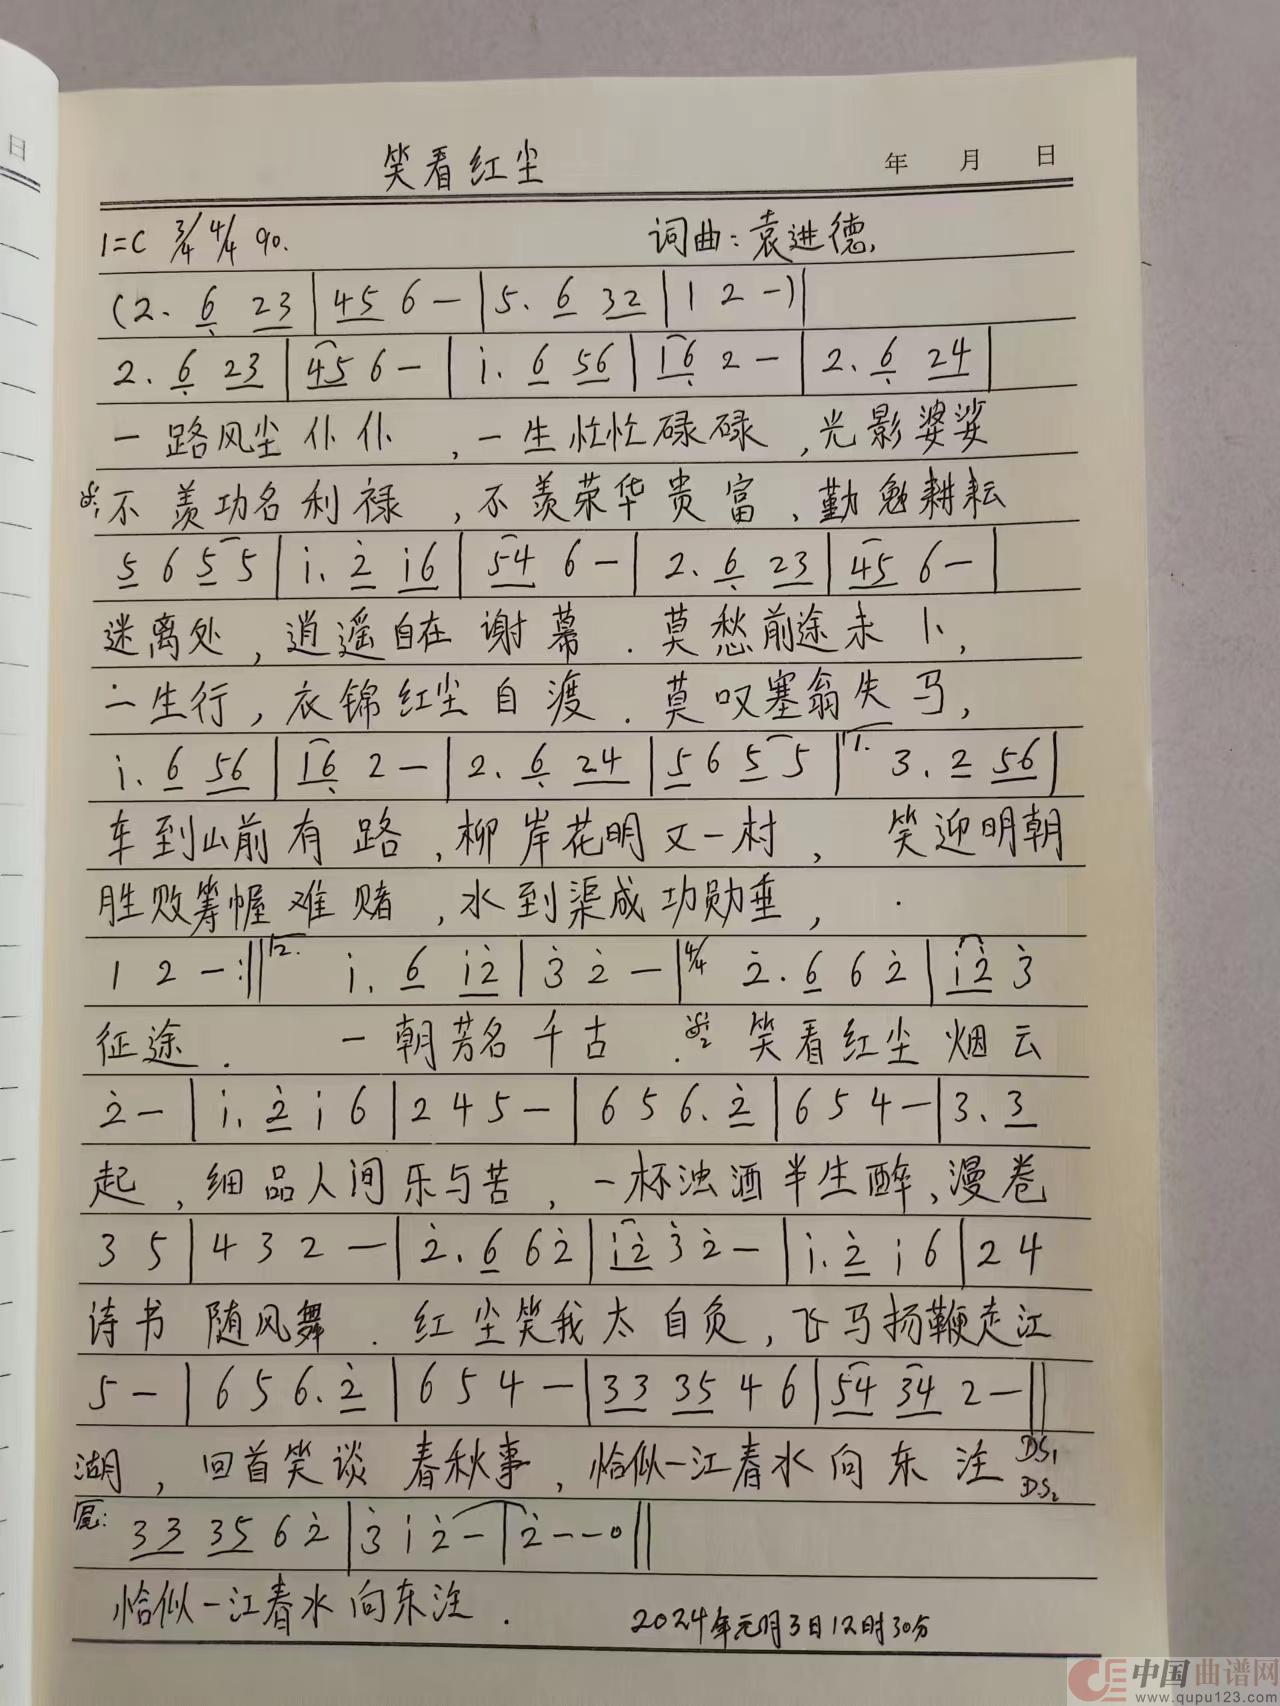 日
笑看红尘
年 月 日
1=C 3/4 4/4 90.
词曲：袁进德
(2. 6̣ 23 | 45 6 — | 5. 6 32 | 1 2 —) |
2. 6̣ 23 | 45 6 — | i. 6 56 | 16̣ 2 — | 2. 6̣ 24 |
一路风尘仆仆，一生忙忙碌碌，光影婆娑
不羡功名利禄，不羡荣华贵富，勤勉耕耘
5 6 5 5 | i. 2̇ i6 | 54 6 — | 2. 6̣ 23 | 45 6 — |
迷离处，逍遥自在谢幕．莫愁前途未卜，
一生行，衣锦红尘自渡．莫叹塞翁失马，
i. 6 56 | 16̣ 2 — | 2. 6̣ 24 | 5 6 5 5 | 1. 3. 2 56 |
车到山前有路，柳岸花明又一村，笑迎明朝
胜败筹幄难赌，水到渠成功勋垂，
1 2 — :‖ 2. i. 6 i2̇ | 3̇ 2̇ — | 4/4 2̇. 6 6 2̇ | i2̇ 3̇
征途．一朝芳名千古．笑看红尘烟云
2̇ — | i. 2̇ i 6 | 2 4 5 — | 6 5 6. 2̇ | 6 5 4 — | 3. 3
起，细品人间乐与苦，一杯浊酒半生醉，漫卷
3 5 | 4 3 2 — | 2̇. 6 6 2̇ | i2̇ 3̇ 2̇ — | i. 2̇ i 6 | 2 4
诗书随风舞．红尘笑我太自负，飞马扬鞭走江
5 — | 6 5 6. 2̇ | 6 5 4 — | 33 35 4 6 | 54 34 2 — ‖
湖，回首笑谈春秋事，恰似一江春水向东注 D.S1
D.S2
尾: 33 35 6 2̇ | 3̇ i 2̇ — | 2̇ — — 0 ‖
恰似一江春水向东注．
2024年元月3日12时30分
中国曲谱网
www.qupu123.com